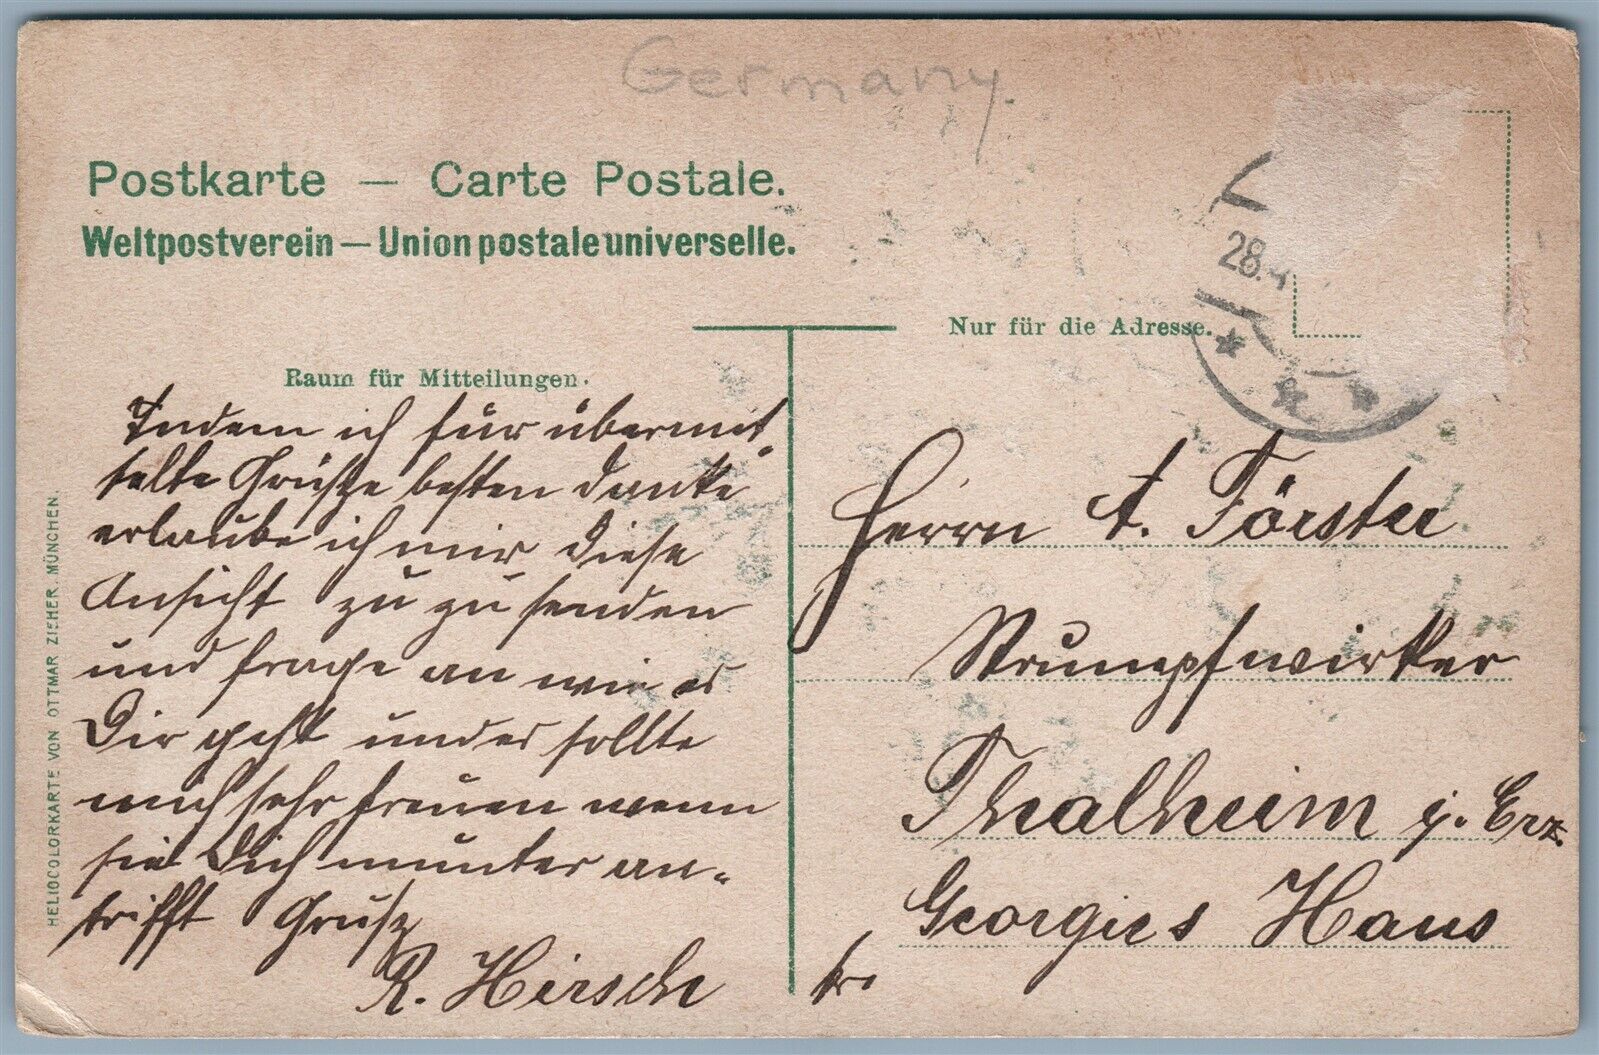 Germany.
Postkarte — Carte Postale.
Weltpostverein — Union postale universelle.
Nur für die Adresse.
28.
Raum für Mitteilungen.
Indem ich für übermit-
telte Grüsze besten danke
erlaube ich mir diese
Ansicht zu zu senden
und frage an wie es
Dir geht und es sollte
mich sehr freuen wenn
sie Dich munter an-
trifft Grusz
R. Hirsch
Herrn A. Förster
Strumpfwirker
Thalheim i. Erz.
Georgies Haus
HELIOCOLORKARTE VON OTTMAR ZIEHER, MÜNCHEN.